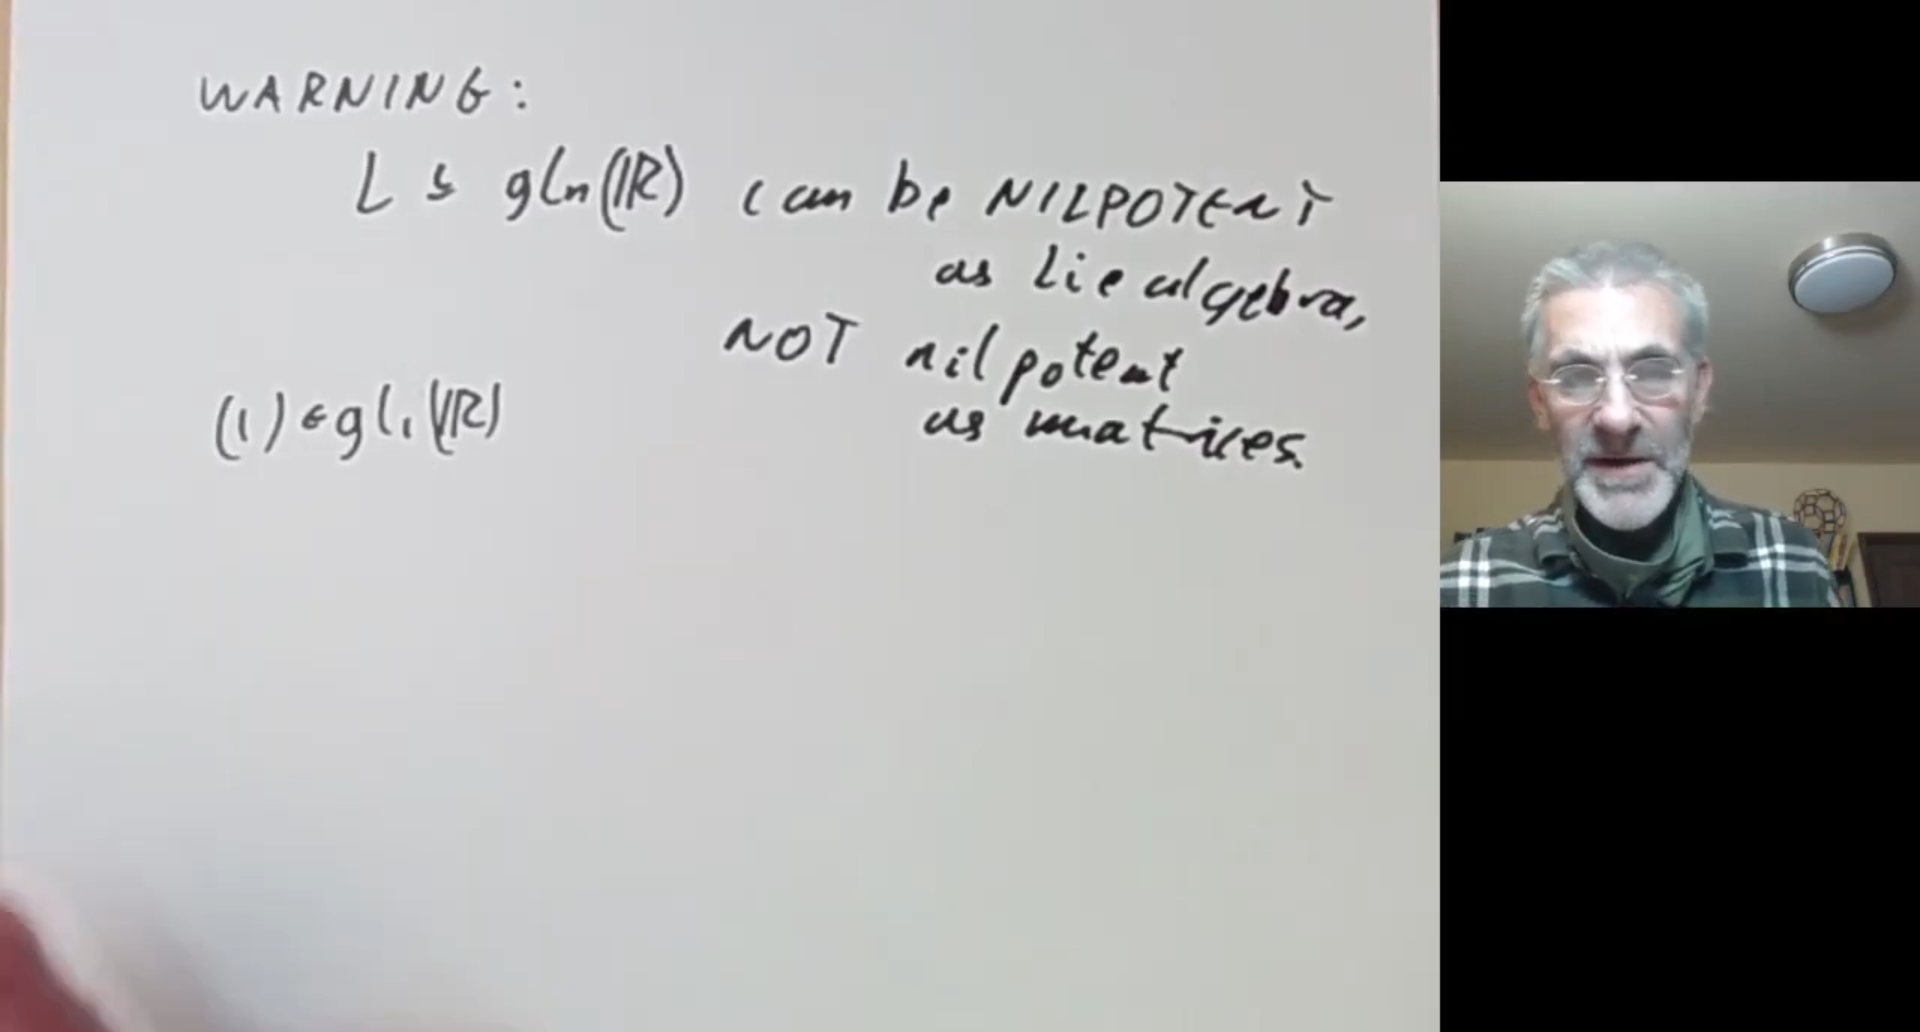 WARNING:
L ⊆ gln(ℝ) can be NILPOTENT
as Lie algebra,
NOT nilpotent
as matrices.
(1) ∈ gl₁(ℝ)